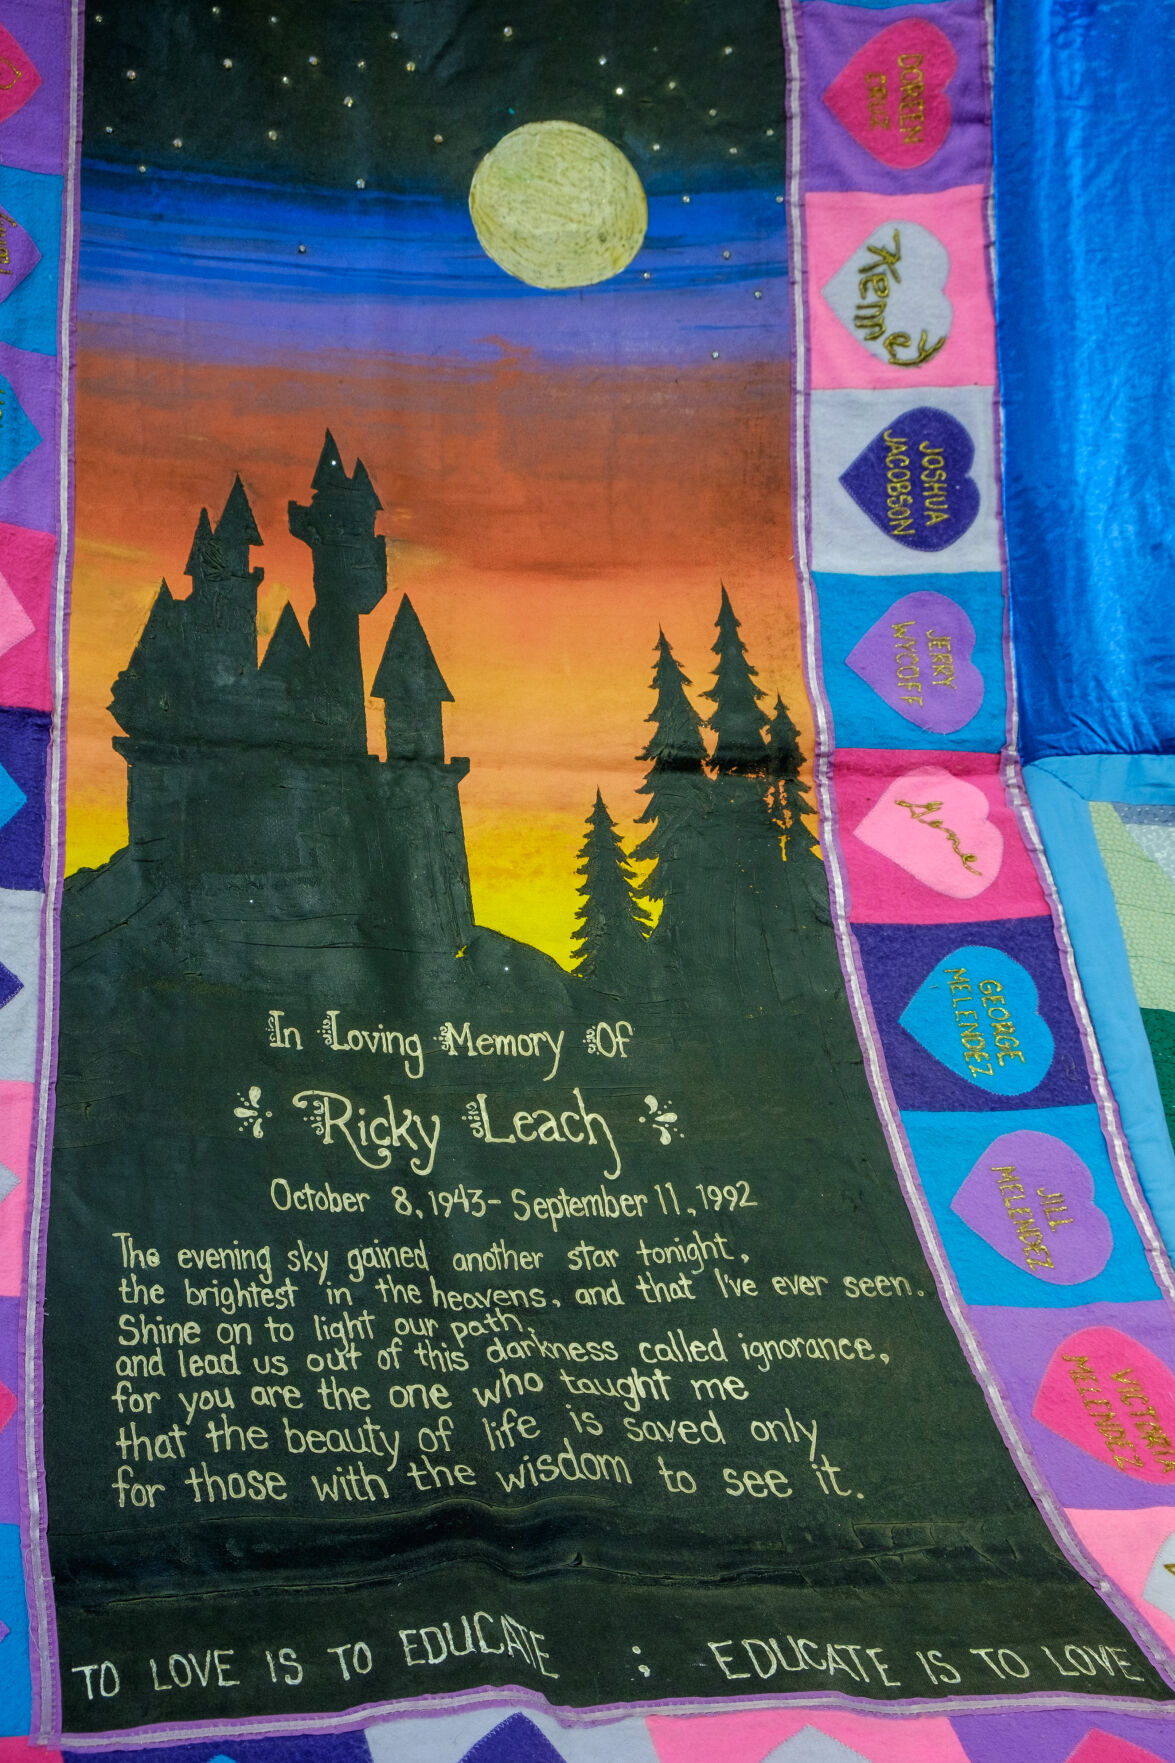 In Loving Memory Of
Ricky Leach
October 8, 1943 - September 11, 1992
The evening sky gained another star tonight,
the brightest in the heavens, and that I've ever seen.
Shine on to light our path,
and lead us out of this darkness called ignorance,
for you are the one who taught me
that the beauty of life is saved only
for those with the wisdom to see it.
TO LOVE IS TO EDUCATE ; EDUCATE IS TO LOVE
DOREEN
CRUZ
Kenny
JOSHUA
JACOBSON
JERRY
WYCOFF
Gene
GEORGE
MELENDEZ
JILL
MELENDEZ
VICTORIA
MELENDEZ